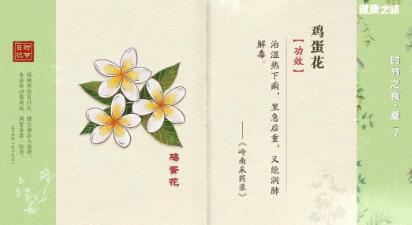 健康之路
时节之食·夏 7
鸡蛋花
【功效】
治湿热下痢，里急后重，又能润肺
解毒。
——《岭南采药录》
鸡蛋花
时节
日记